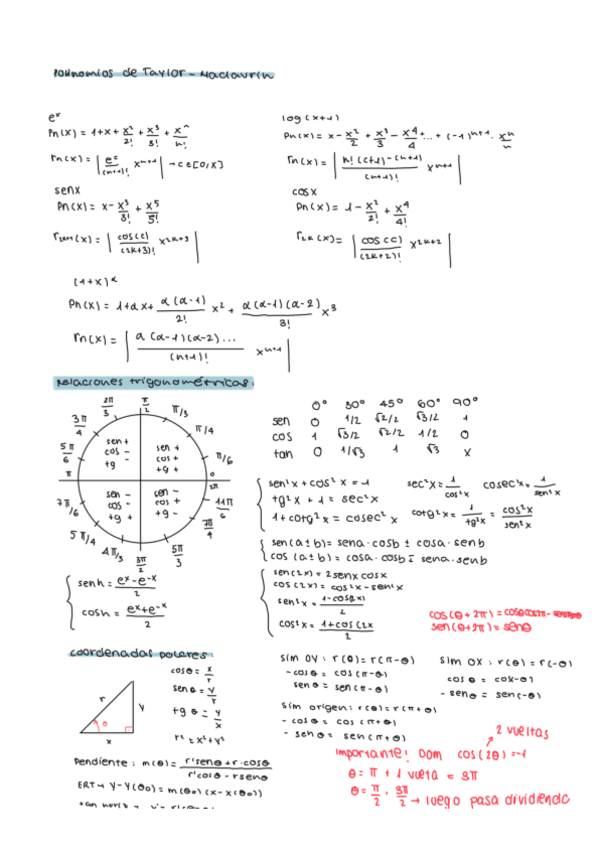 Polinomios de Taylor - Maclaurin
e^x
Pn(x) = 1+x+ x²/2! + x³/3! + x^n/n!
rn(x) = | e^c/(n+1)! x^(n+1) | → c∈[0,x]
log(x+1)
Pn(x) = x - x²/2 + x³/3 - x⁴/4 + ... + (-1)^(n+1) · x^n/n
rn(x) = | n!(c+1)^-(n+1)/(n+1)! x^(n+1) |
senx
Pn(x) = x - x³/3! + x⁵/5!
r2k+1(x) = | cos(c)/(2k+3)! x^(2k+3) |
cosx
Pn(x) = 1 - x²/2! + x⁴/4!
r2k(x) = | cos(c)/(2k+2)! x^(2k+2) |
(1+x)^α
Pn(x) = 1+αx+ α(α-1)/2! x² + α(α-1)(α-2)/3! x³
rn(x) = | α(α-1)(α-2).../(n+1)! x^(n+1) |
Relaciones trigonométricas:
π/2
2π/3 π/3
3π/4 π/4
5π/6 π/6
π 0
2π
7π/6 11π/6
5π/4 7π/4
4π/3 5π/3
3π/2
sen + cos - tg -
sen + cos + tg +
sen - cos - tg +
sen - cos + tg -
0° 30° 45° 60° 90°
sen 0 1/2 √2/2 √3/2 1
cos 1 √3/2 √2/2 1/2 0
tan 0 1/√3 1 √3 x
sen²x + cos²x = 1
tg²x + 1 = sec²x
1 + cotg²x = cosec²x
sec²x = 1/cos²x cosec²x = 1/sen²x
cotg²x = 1/tg²x = cos²x/sen²x
sen(a±b) = sena·cosb ± cosa·senb
cos(a±b) = cosa·cosb ∓ sena·senb
sen(2x) = 2senx cosx
cos(2x) = cos²x - sen²x
sen²x = 1-cos(2x)/2
cos²x = 1+cos(2x/2
senh = e^x - e^-x/2
cosh = e^x + e^-x/2
sen(θ+2π) = senθ
coordenadas polares:
r y θ x
cosθ = x/r
senθ = y/r
tgθ = y/x
r² = x²+y²
Pendiente: m(θ) = r'senθ + r·cosθ/r'cosθ - rsenθ
ERT → y-y(θo) = m(θo)(x-x(θo))
sim OY: r(θ) = r(π-θ)
-cosθ = cos(π-θ)
senθ = sen(π-θ)
sim OX: r(θ) = r(-θ)
cosθ = cos(-θ)
-senθ = sen(-θ)
sim origen: r(θ) = r(π+θ)
-cosθ = cos(π+θ)
-senθ = sen(π+θ)
2 vueltas
Importante! Dom cos(2θ) = -1
θ = π + 1 vuelta = 3π
θ = π/2, 3π/2 → luego pasa dividiendo